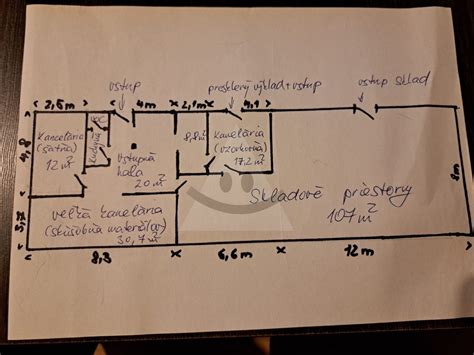 vstup
presklený výklad+vstup
vstup sklad
2,5m
4m
2,1m
4,1
4,8
WC
Kancelária
(šatňa)
12 m²
kuchyňa
vstupná
hala
20 m²
8,8m²
Kancelária
(vzorkovňa)
17,2 m²
8m
Skladové priestory
107 m²
3,7
veľká kancelária
(skúšobňa materiálov)
30,7 m²
8,3
6,6m
12 m